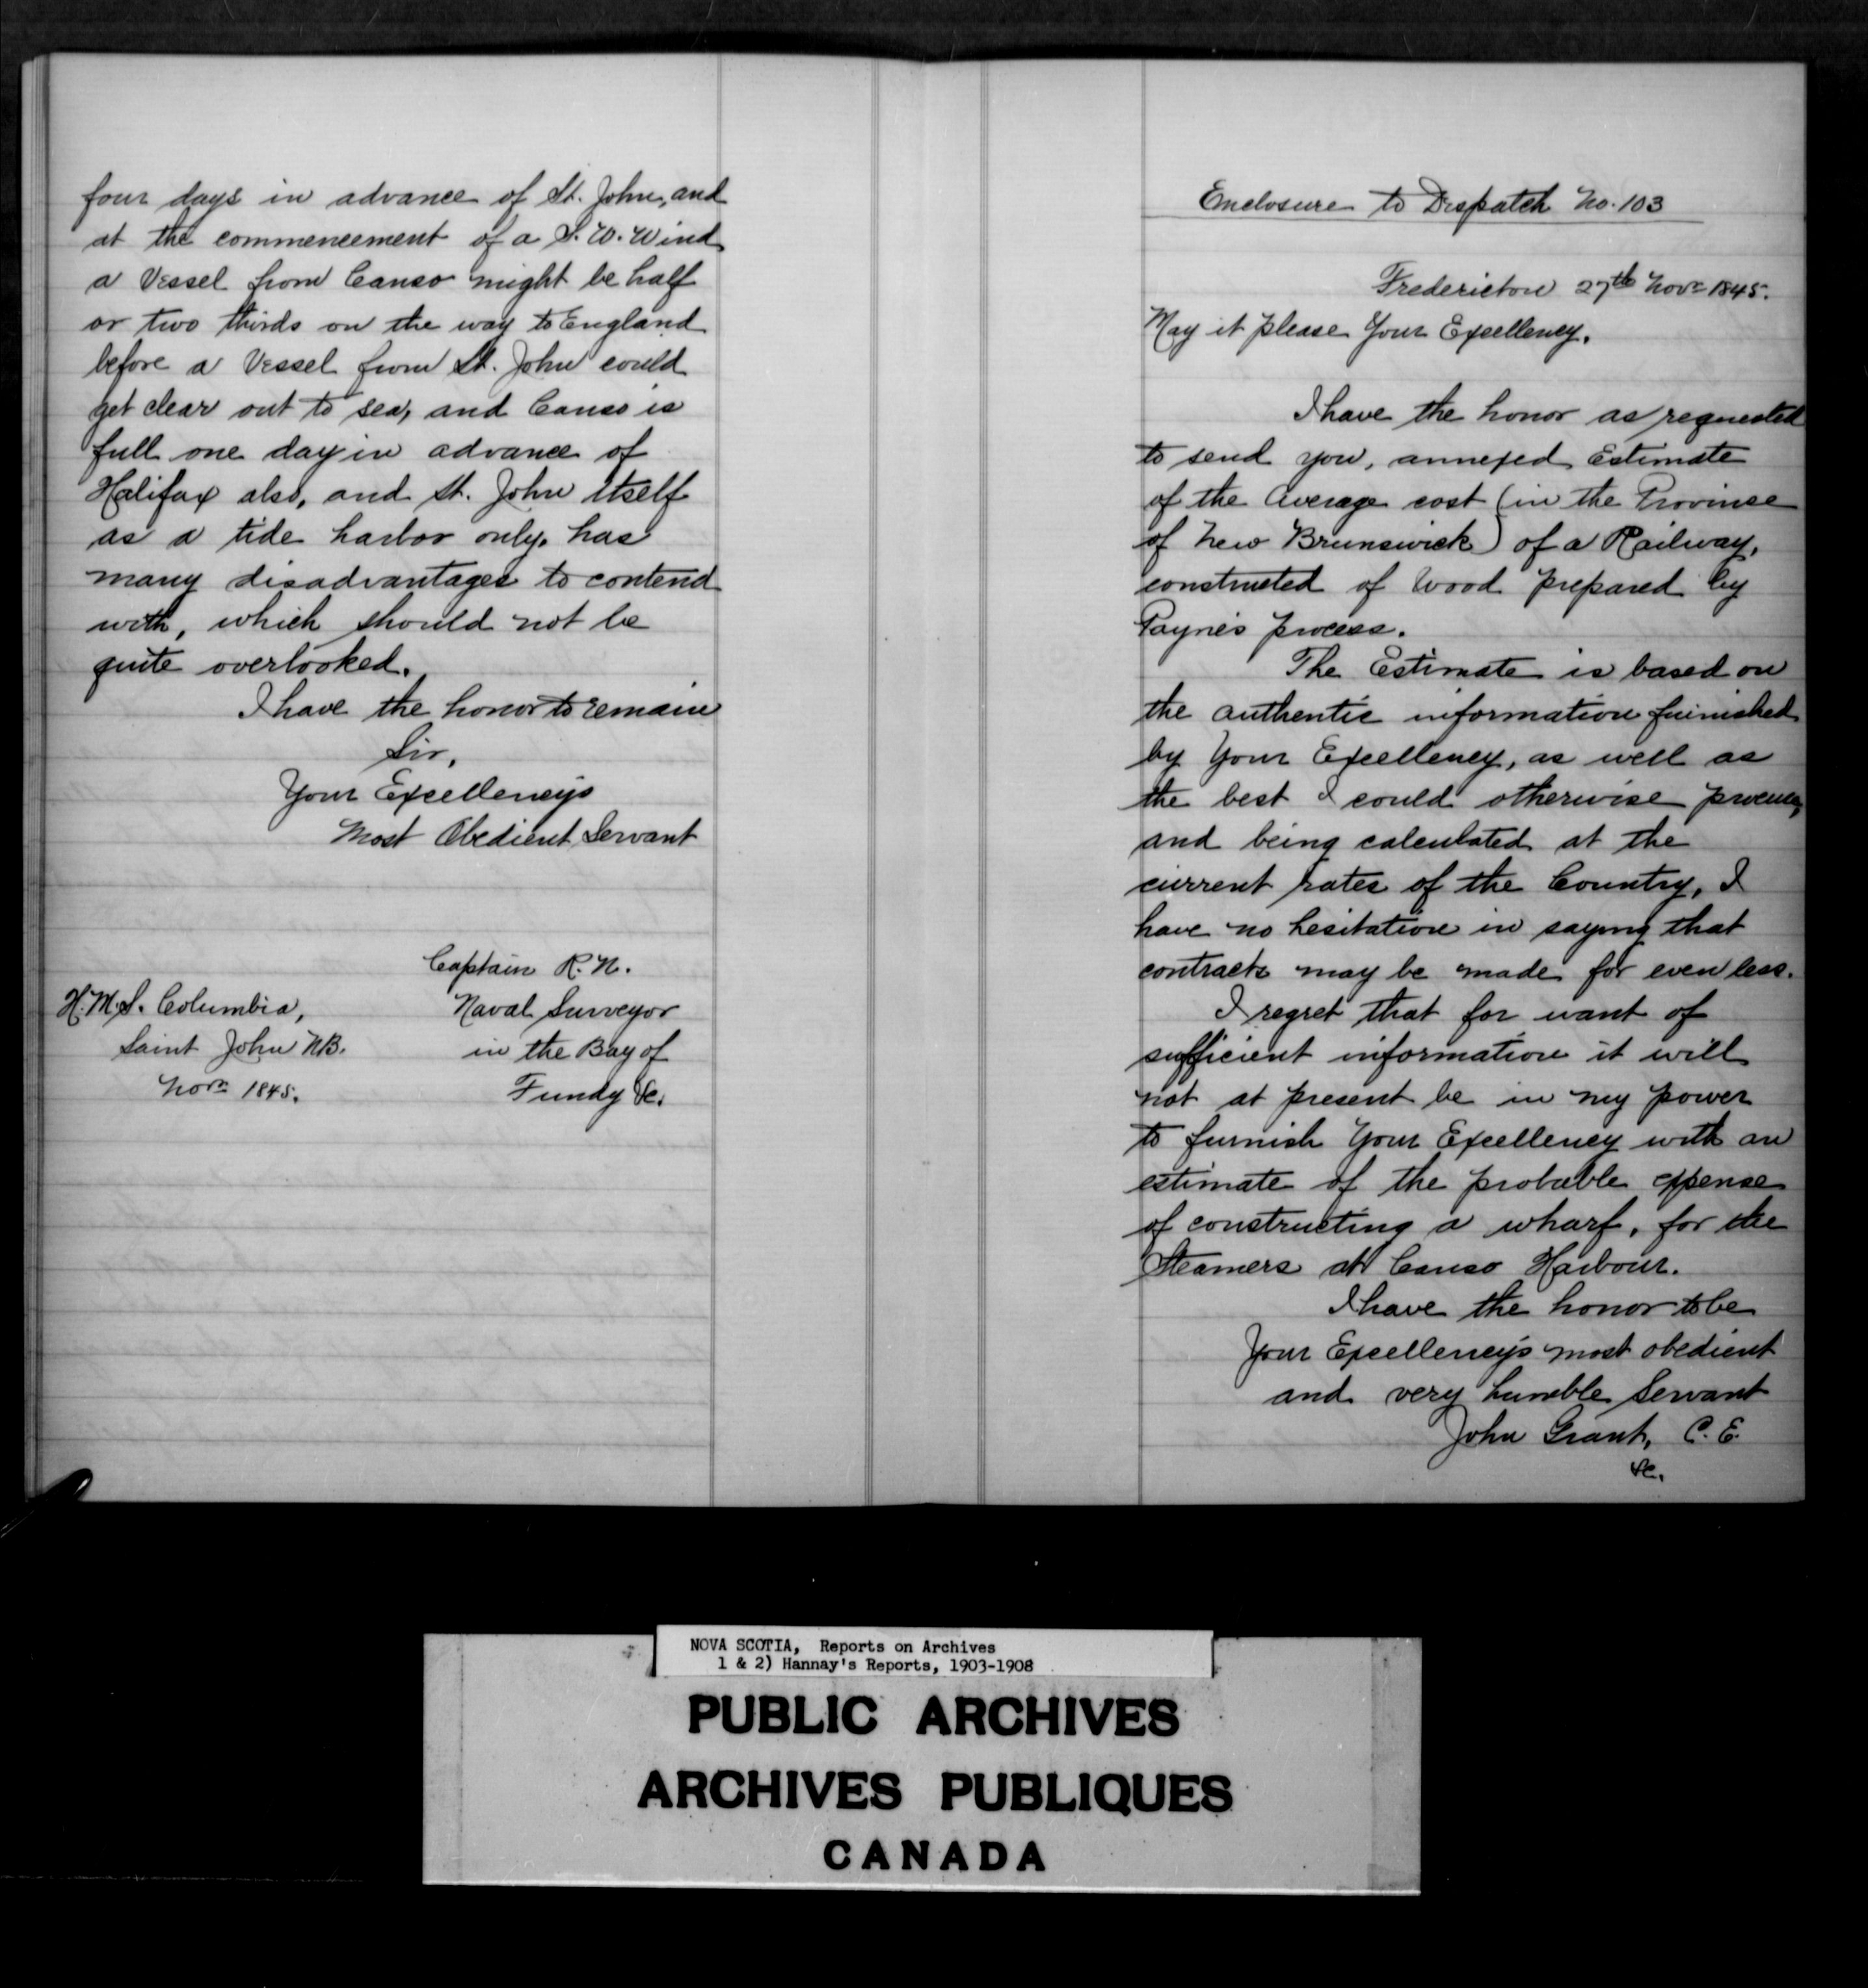 four days in advance of St. John, and
at the commencement of a S. W. Wind
a Vessel from Canso might be half
or two thirds on the way to England
before a Vessel from St. John could
get clear out to sea, and Canso is
full one day in advance of
Halifax also, and St. John itself
as a tide harbor only, has
many disadvantages to contend
with, which should not be
quite overlooked.
I have the honor to remain
Sir,
Your Excellencys
Most Obedient Servant
Captain R. N.
H. M. S. Columbia,
Naval Surveyor
Saint John N.B.
in the Bay of
Novr 1845.
Fundy &c.
Enclosure to Despatch No. 103
Fredericton 27th Novr 1845.
May it please Your Excellency,
I have the honor as requested
to send you, annexed Estimate
of the Average cost (in the Province
of New Brunswick) of a Railway,
constructed of Wood prepared by
Payne's process.
The Estimate is based on
the authentic information furnished
by Your Excellency, as well as
the best I could otherwise procure,
and being calculated at the
current rates of the Country, I
have no hesitation in saying that
contracts may be made for even less.
I regret that for want of
sufficient information it will
not at present be in my power
to furnish Your Excellency with an
estimate of the probable expense
of constructing a wharf, for the
Steamers at Canso Harbour.
I have the honor to be
Your Excellency's most obedient
and very humble Servant
John Grant, C. E.
&c.
NOVA SCOTIA, Reports on Archives
1 & 2) Hannay's Reports, 1903-1908
PUBLIC ARCHIVES
ARCHIVES PUBLIQUES
CANADA